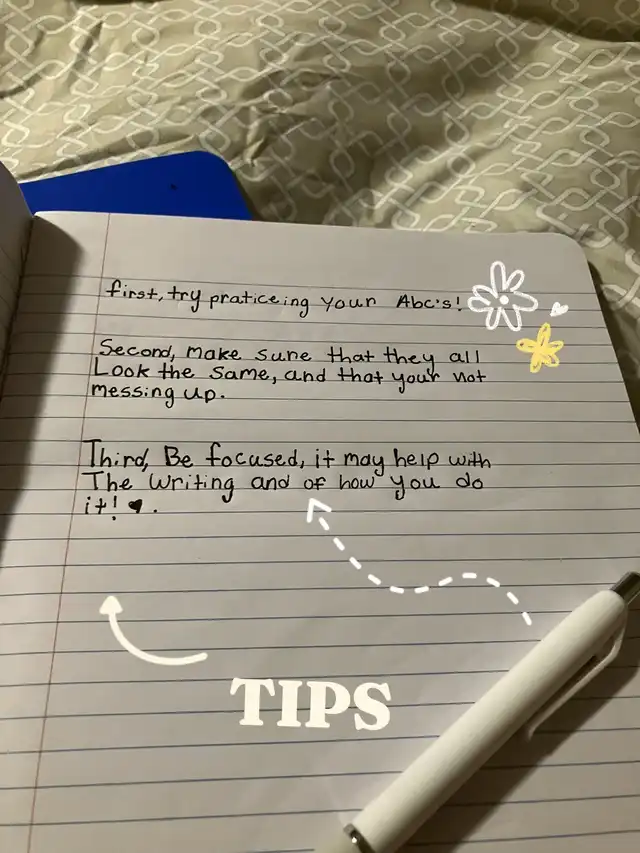 first, try praticeing your Abc's!
Second, make sure that they all
Look the same, and that your not
messing up.
Third, Be focused, it may help with
The writing and of how you do
it! ♥.
TIPS